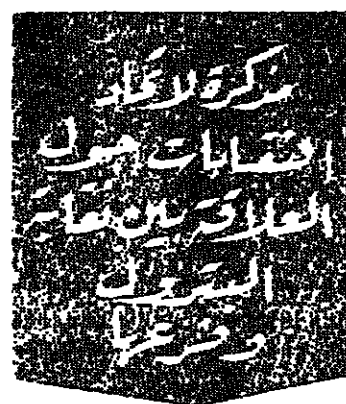 مذكرة لاتحاد
النقابات حول
العلاقة بين نقابة
البترول
وفرعها